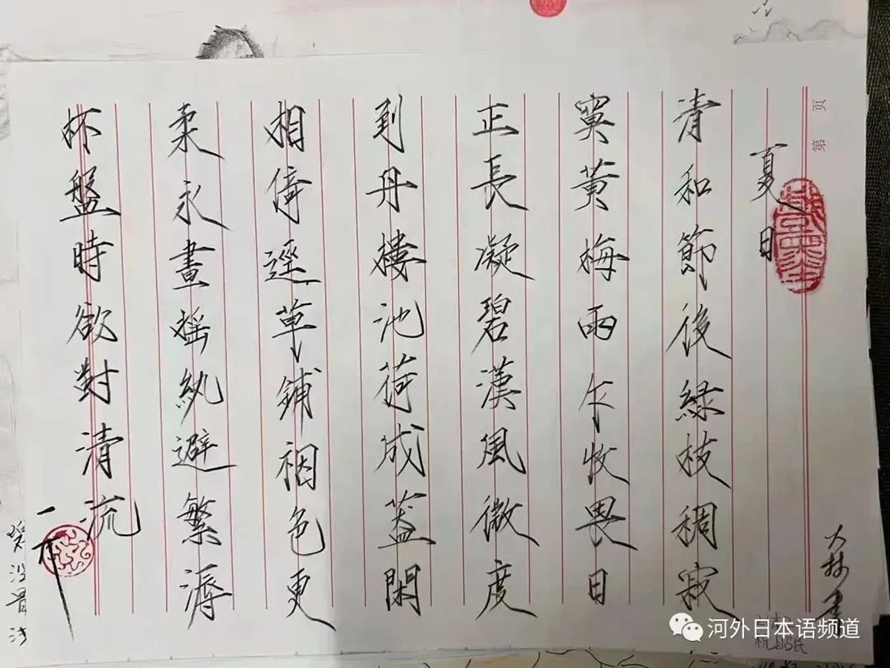 第 页
夏日
清和節後緑枝稠寂
寞黃梅雨乍收畏日
正長凝碧漢風微度
到丹樓池荷成蓋閑
相倚逕草鋪裀色更
柔永晝摇紈避繁溽
杯盤時欲對清流
河外日本语频道